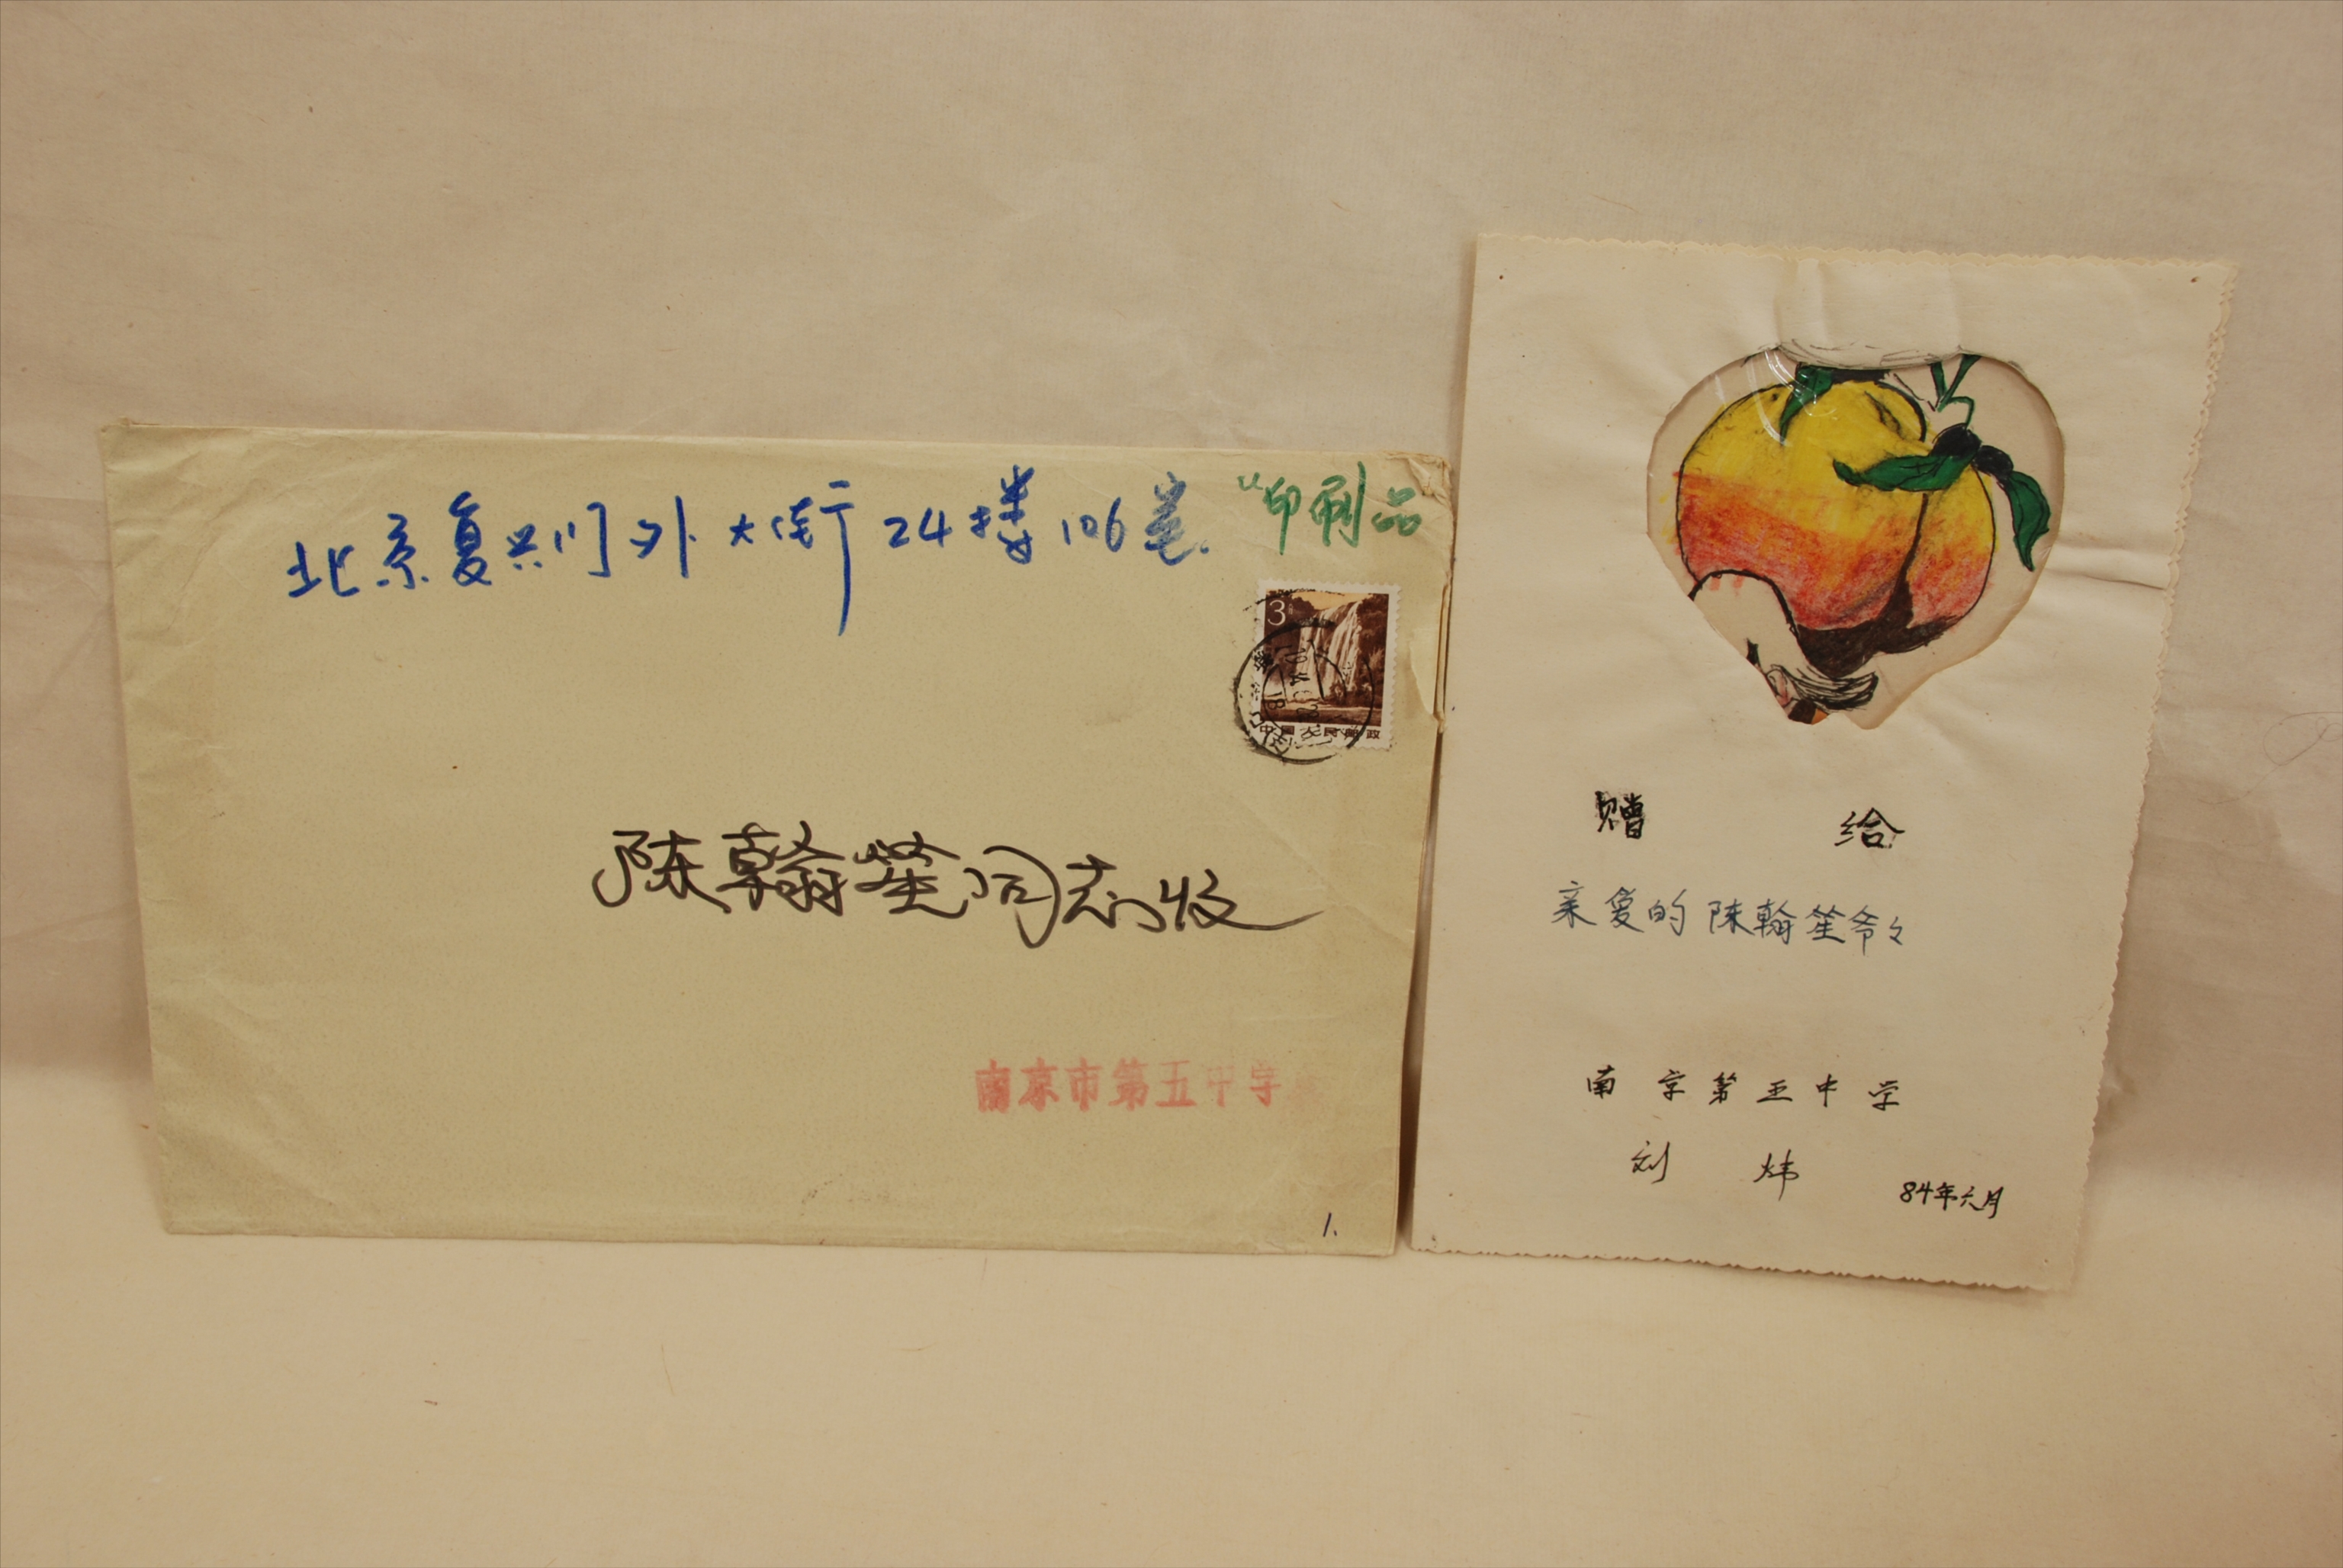 北京复兴门外大街24楼106笔.
“印刷品
3
陈翰笙同志收
南京市第五中学
1.
赠 给
亲爱的陈翰笙爷々
南京第五中学
刘 炜
84年六月